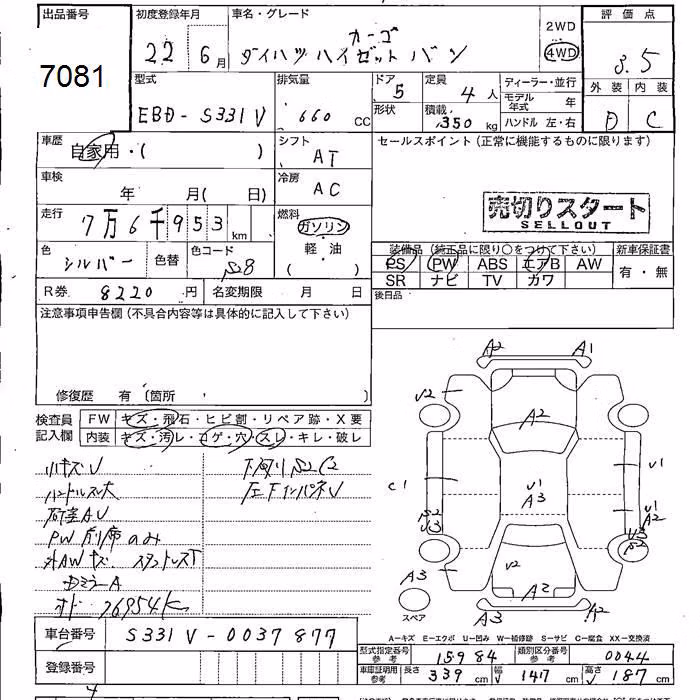 出品番号
7081
初度登録年月
22 6月
車名・グレード
カーゴ
ダイハツハイゼットバン
2WD
4WD
評価点
3.5
外装 内装
D C
型式
EBD-S331V
排気量
660 CC
ドア
5
定員
4人
形状
積載
350 kg
ディーラー・並行
モデル年式 年
ハンドル 左・右
車歴
自家用・( )
シフト
AT
セールスポイント(正常に機能するものに限ります)
車検
年 月( 日)
冷房
AC
売切りスタート
SELLOUT
走行
7万6千953km
燃料
ガソリン
軽・油
( )
色
シルバー
色替
色コード
S28
装備品(純正品に限り○をつけて下さい)
新車保証書
PS PW ABS エアB AW
SR ナビ TV カワ
有・無
R券 8220円
名変期限 月 日
後日品
注意事項申告欄(不具合内容等は具体的に記入して下さい)
修復歴 有〔箇所 〕
検査員記入欄
FW キズ・飛石・ヒビ割・リペア跡・X要
内装 キズ・汚レ・コゲ・穴・スレ・キレ・破レ
小キズU
下回りS2C2
ハンドルスレ大
左下インパネU
荷室AU
PW前席のみ
外AWキズ スタットレスT
ドミラーA
オド 76954K
A2 A1
U2
A2
C1
U1
U1
A3
U1
A2
S2
U3
U3
S2
U2
A3
A2
スペア
A3
A2
A―キズ E―エクボ U―凹み W―補修跡 S―サビ C―腐食 XX―交換済
車台番号
S331V-0037877
登録番号
型式指定番号 参考
15984
類別区分番号 参考
0044
車庫証明用 参考
長さ 339 cm
幅 147 cm
高さ 187 cm